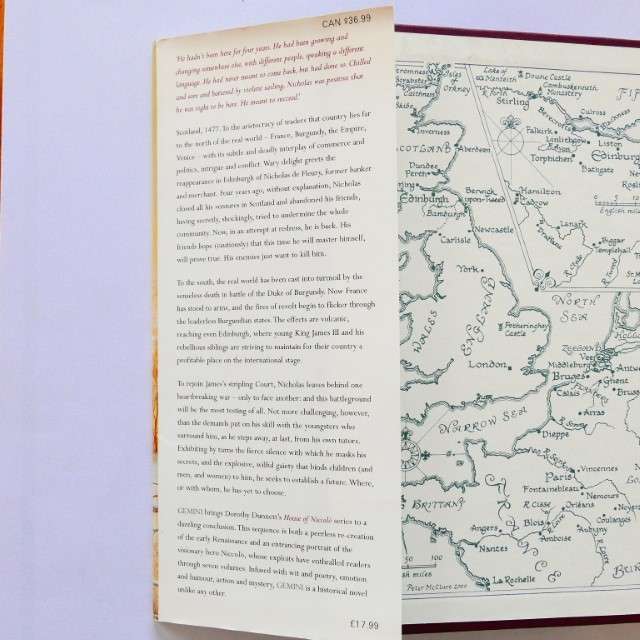 CAN $36.99
'He hadn't been here for four years. He had been growing and
changing somewhere else, with different people, speaking a different
language. He had never meant to come back, but had done so. Chilled
and sore and battered by violent sailing, Nicholas was positive that
he was right to be here. He meant to succeed.'
Scotland, 1477. To the aristocracy of traders that country lies far
to the north of the real world – France, Burgundy, the Empire,
Venice – with its subtle and deadly interplay of commerce and
politics, intrigue and conflict. Wary delight greets the
reappearance in Edinburgh of Nicholas de Fleury, former banker
and merchant. Four years ago, without explanation, Nicholas
closed all his ventures in Scotland and abandoned his friends,
having secretly, shockingly, tried to undermine the whole
community. Now, in an attempt at redress, he is back. His
friends hope (cautiously) that this time he will master himself,
will prove true. His enemies just want to kill him.
To the south, the real world has been cast into turmoil by the
senseless death in battle of the Duke of Burgundy. Now France
has stood to arms, and the fires of revolt begin to flicker through
the leaderless Burgundian states. The effects are volcanic,
reaching even Edinburgh, where young King James III and his
rebellious siblings are striving to maintain for their country a
profitable place on the international stage.
To rejoin James's stripling Court, Nicholas leaves behind one
heartbreaking war – only to face another: and this battleground
will be the most testing of all. Not more challenging, however,
than the demand put on his skill with the youngsters who
surround him, as he steps away, at last, from his own tutors.
Exhibiting by turns the fierce silence with which he masks his
secrets, and the explosive, wilful gaiety that binds children (and
men, and women) to him, he seeks to establish a future. Where,
or with whom, he has yet to choose.
GEMINI brings Dorothy Dunnett's House of Niccolò series to a
dazzling conclusion. This sequence is both a peerless re-creation
of the early Renaissance and an entrancing portrait of the
visionary hero Niccolo, whose exploits have enthralled readers
through seven volumes. Infused with wit and poetry, emotion
and humour, action and mystery, GEMINI is a historical novel
unlike any other.
£17.99
Orkney
Caithness
Inverness
SCOTLAND
Aberdeen
Dundee
Perth
Edinburgh
Berwick
upon-Tweed
Bamburgh
Newcastle
Carlisle
York
ENGLAND
WALES
Fotheringhay
Castle
London
NARROW SEA
BRITTANY
Lake of
Menteith
Doune Castle
Cambuskenneth
Monastery
R. Forth
Stirling
FIF
Culross
Falkirk
Linlithgow
Torphichen
Liston
Edinburgh
Bathgate
Newbattle
Hamilton
R. Avon
English mile
Lanark
Biggar
Templehall
R. Tweed
NORTH
SEA
ZEELAND
Veere
Middelburg
Bruges
Antwe
Ghent
Bruss
Calais
Arras
Dieppe
Paris
Vincennes
Fontainebleau
Nemours
R. Cisse
Orléans
Noyers
Blois
Coulanges
Angers
Amboise
Aubigny
Nantes
La Rochelle
50 100
ish miles
Peter McClure 2000